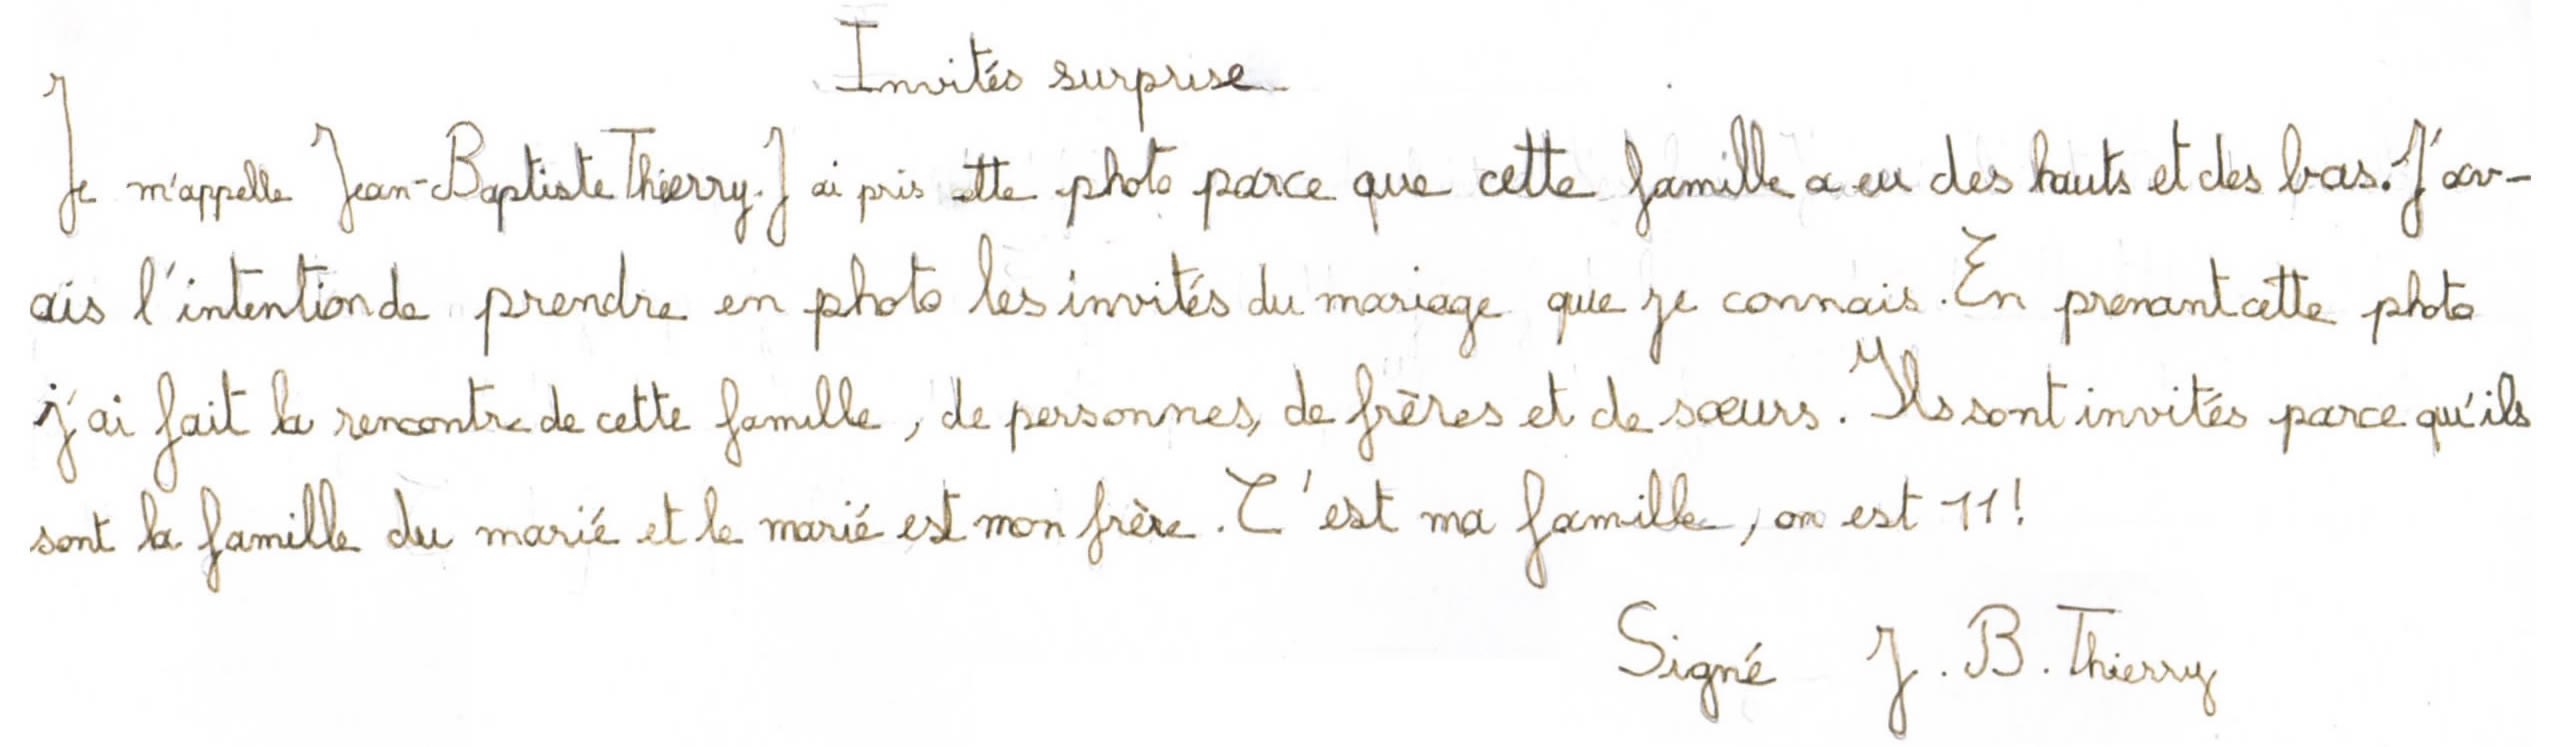 Invités surprise
Je m'appelle Jean-Baptiste Thierry. J'ai pris cette photo parce que cette famille a eu des hauts et des bas. J'av-
ais l'intention de prendre en photo les invités du mariage que je connais. En prenant cette photo
j'ai fait la rencontre de cette famille, de personnes, de frères et de sœurs. Ils sont invités parce qu'ils
sont la famille du marié et le marié est mon frère. C'est ma famille, on est 11!
Signé J. B. Thierry